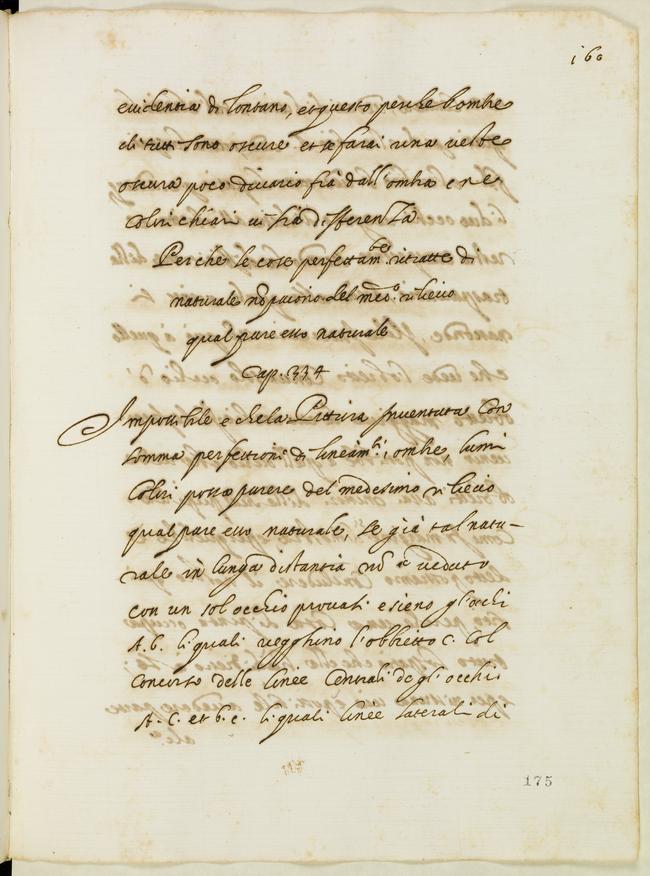 160
euidentia di lontano, et questo perche l'ombre
di tutti sono oscure et se farai una ueste
oscura poco diuario fia dall'ombra e ne
colori chiari ui fia differenza
Perche le cose perfettam.te ritratte di
naturale nõ paiono del med.o rilieuo
qual pare esso naturale
Cap. 334
Impossibile e che la Pittura inuentata con
somma perfettione di lineam.ti, ombre, lumi
colori possa parere del medesimo rilieuo
qual pare esso naturale, se già tal natu-
rale in lunga distantia nõ è ueduto
con un sol occhio prouasi e sieno gl'occhi
A. b. li quali vegghino l'obbietto c. col
concorso delle linee centrali de gl'occhi
A. C. et b. c. li quali linee laterali di
175